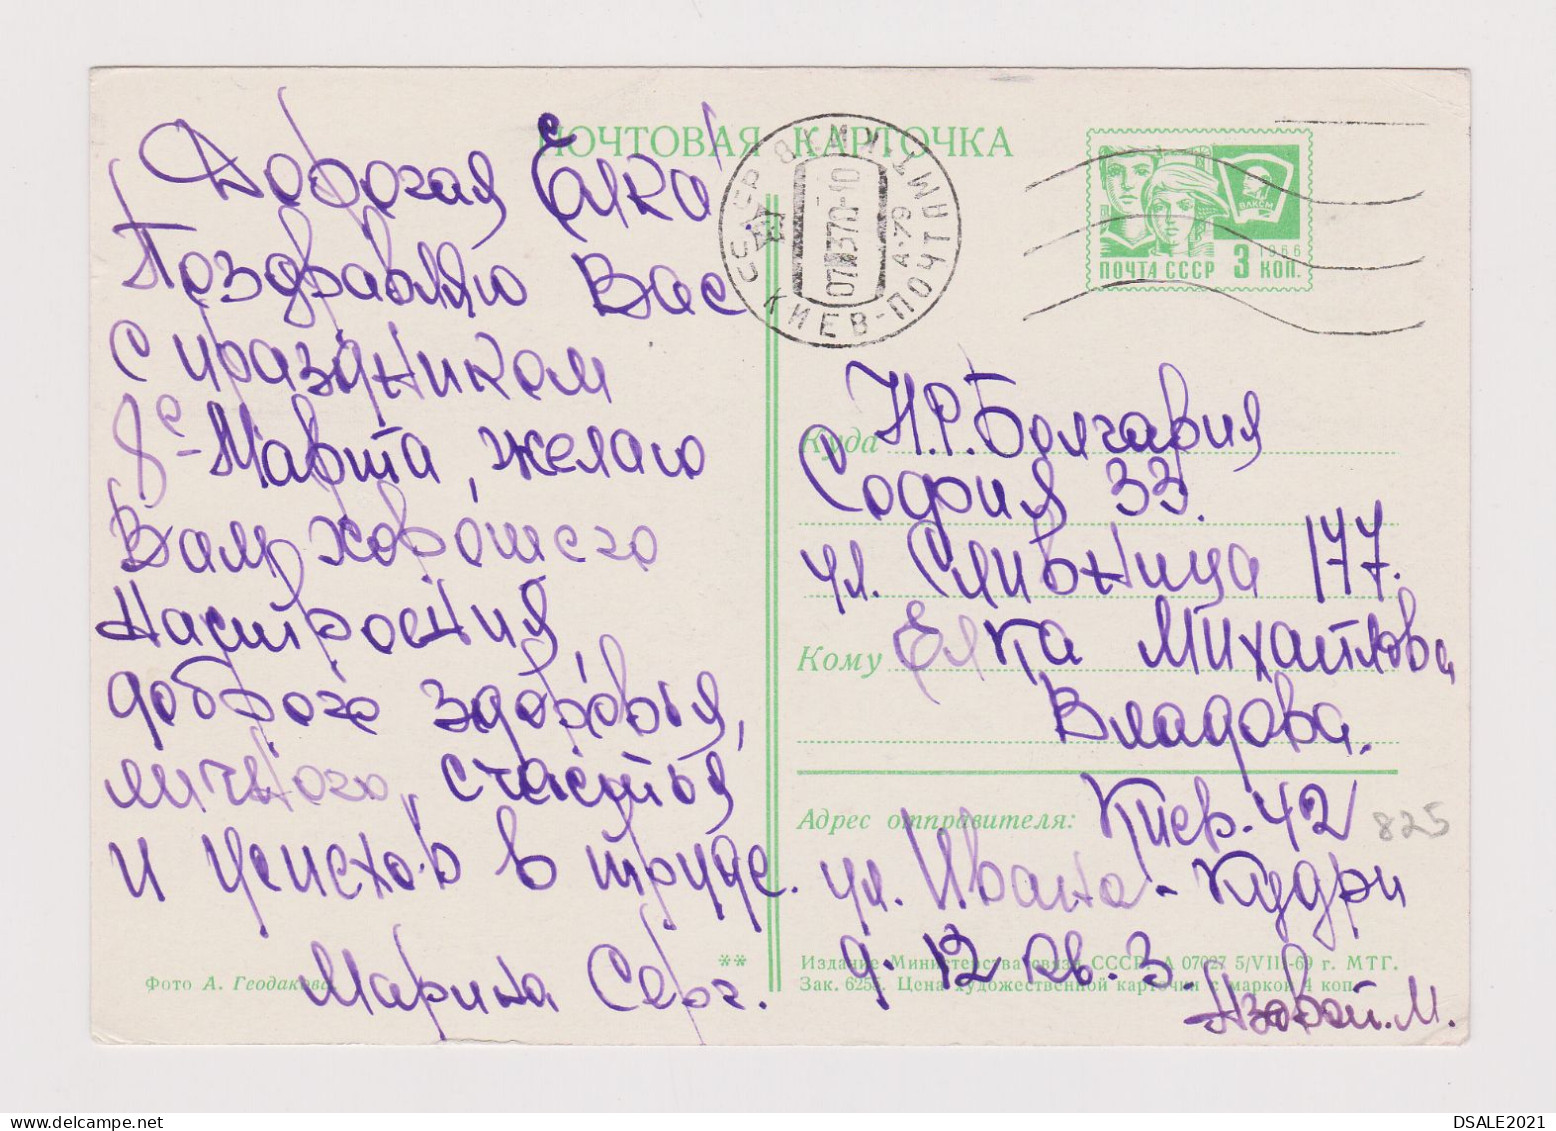 ПОЧТОВАЯ КАРТОЧКА
Дорогая Ёлка!
Поздравляю Вас
с праздником
8е - Марта, желаю
Вам хорошего
настроения,
доброго здоровья,
личного, счастья
и успехов в труде.
Марина Серг.
Фото А. Геодакова
**
КИЕВ-ПОЧТАМТ
А-79
070370-10
1966
ВЛКСМ
ПОЧТА СССР 3 КОП.
Куда Н.Р.Болгария
София 33.
ул. Сливница 177.
Кому Елка Михайлова
Владова.
Адрес отправителя: Киев-42
825
ул. Ивана-Кудри
д. 12 кв. 3.
Издание Министерства связи СССР. А 07027 5/VIII-69 г. МТГ.
Зак. 6258. Цена художественной карточки с маркой 4 коп.
DSALE2021